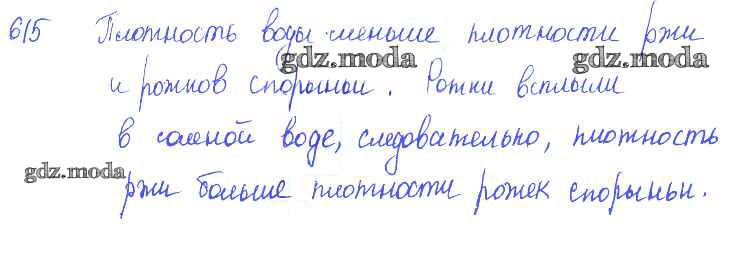 615 Плотность воды меньше плотности ржи
gdz.moda gdz.moda
и рожков спорыньи. Рожки всплыли
в соленой воде, следовательно, плотность
gdz.moda
ржи больше плотности рожек спорыньи.